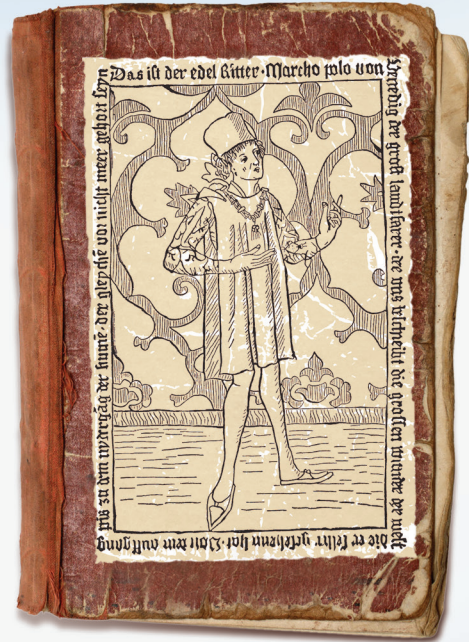 Das iſt der edel Ritter·Marcho polo von
Venedig der groſt landtfarer·der uns beſchreibt die groſſen wunder der welt
die er ſelber geſehenn hat·Von dem auffgang
pis zu dem nydergãg der ſunnẽ·der gleychẽ vor nicht meer gehort ſeyn